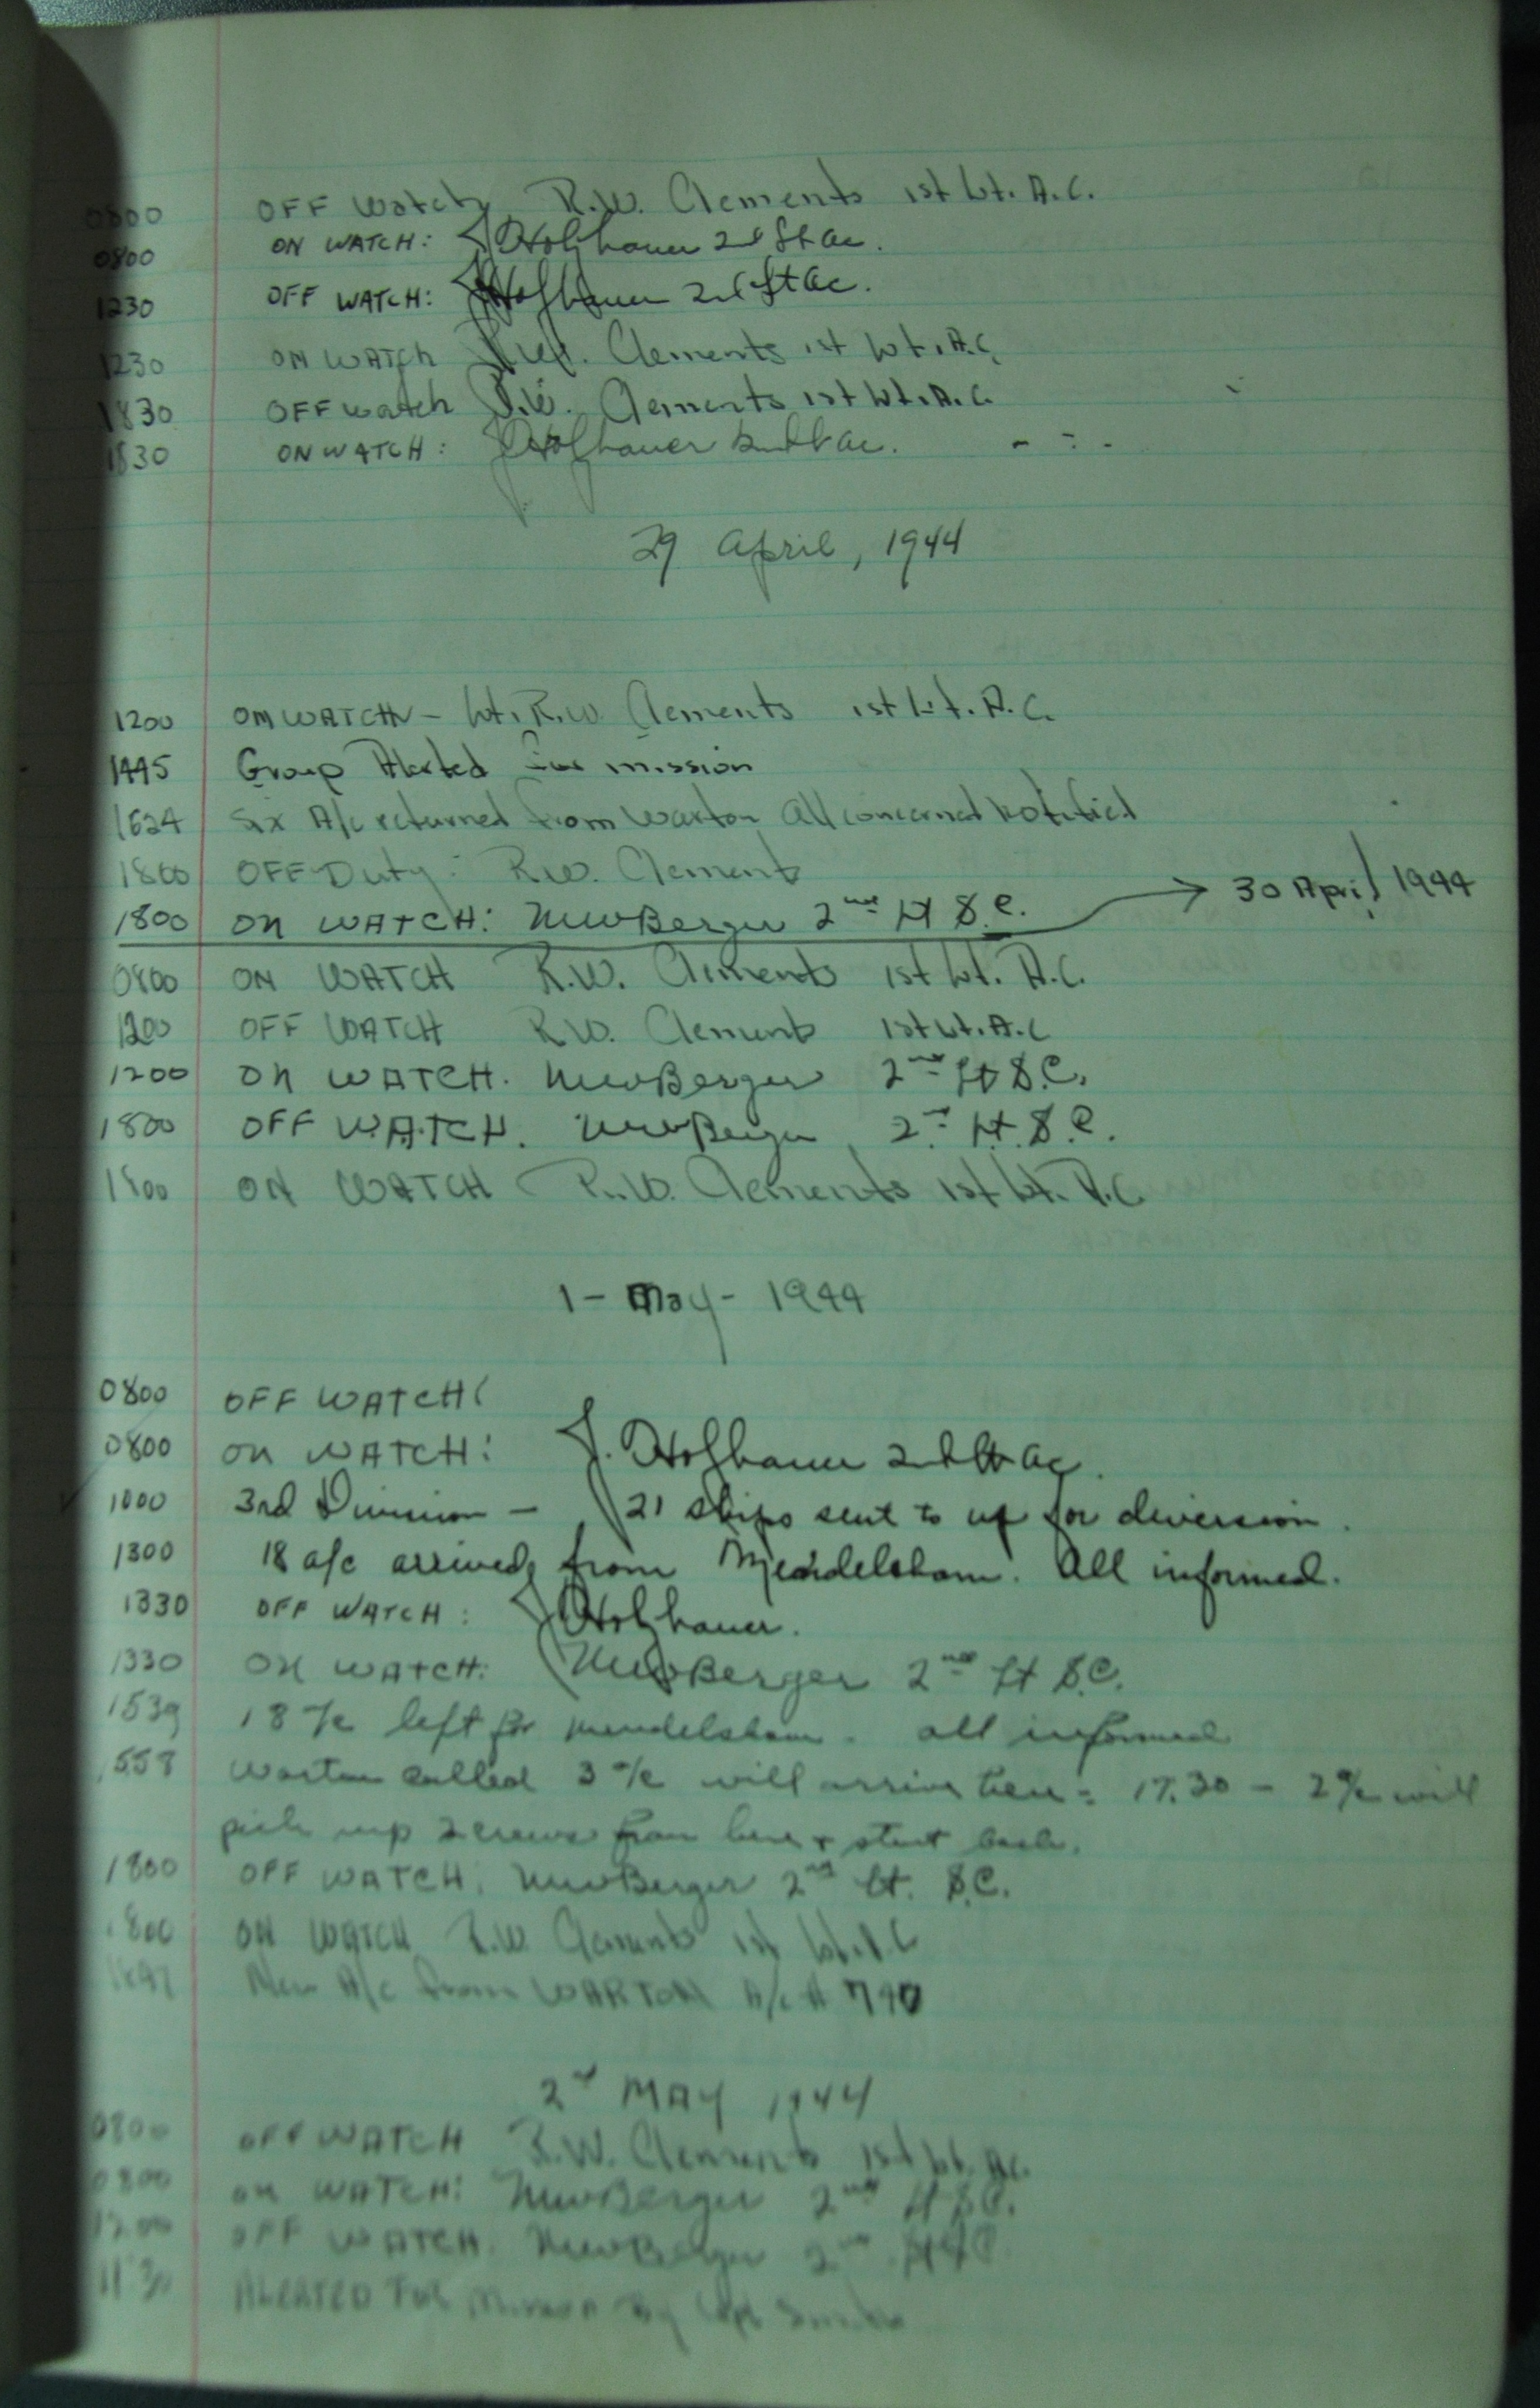 0800 OFF Watch R.W. Clements 1st Lt. A.C.
0800 ON WATCH: J Holzhauer 2nd Lt AC.
1230 OFF WATCH: J Holzhauer 2nd Lt AC.
1230 ON WATCH R.W. Clements 1st Lt. A.C.
1830 OFF watch R.W. Clements 1st Lt. A.C.
1830 ON WATCH: J Holzhauer 2nd Lt AC.
29 April, 1944
1200 ON WATCH - Lt. R.W. Clements 1st Lt. A.C.
1445 Group Alerted for mission
1624 Six A/c returned from Warton All concerned Notified
1800 OFF Duty: R.W. Clements
1800 ON WATCH: MWBerger 2nd Lt S.C. → 30 April 1944
0800 ON WATCH R.W. Clements 1st Lt. A.C.
1200 OFF WATCH R.W. Clements 1st Lt. A.C
1200 ON WATCH. MWBerger 2nd Lt S.C.
1800 OFF WATCH. MWBerger 2nd Lt. S.C.
1800 ON WATCH R.W. Clements 1st Lt. A.C.
1 - May - 1944
0800 OFF WATCH:
0800 ON WATCH: J. Holzhauer 2nd Lt AC.
1000 3rd Division - 21 ships sent to us for diversion.
1300 18 a/c arrived from Mendelsham. All informed.
1330 OFF WATCH: J Holzhauer.
1330 ON WATCH: MWBerger 2nd Lt S.C.
1539 18 a/c left for Mendelsham. all informed
1558 Warton called 3 a/c will arrive here = 17.30 - 2 a/c will
pick up 2 crews from here + start back.
1800 OFF WATCH: MWBerger 2nd Lt. S.C.
1800 ON WATCH R.W. Clements 1st Lt. A.C
New A/c from WARTON A/c # 790
2nd MAY 1944
0800 OFF WATCH R.W. Clements 1st Lt. AC.
0800 ON WATCH: MWBerger 2nd Lt S.C.
1200 OFF WATCH. MWBerger 2nd Lt S.C.
1130 ALERTED FOR Mission By Capt